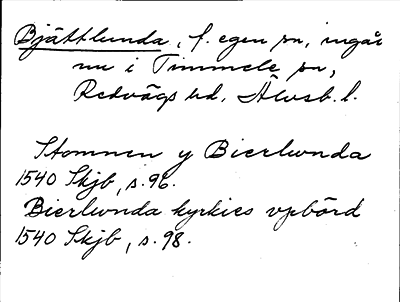 Bjättlunda, f. egen sn, ingår
nu i Timmele sn,
Redvägs hd, Älvsb. l.
Stommen y Bierlunda
1540 Skjb, s. 96.
Bierlunda kyrkies vpbörd
1540 Skjb, s. 98.